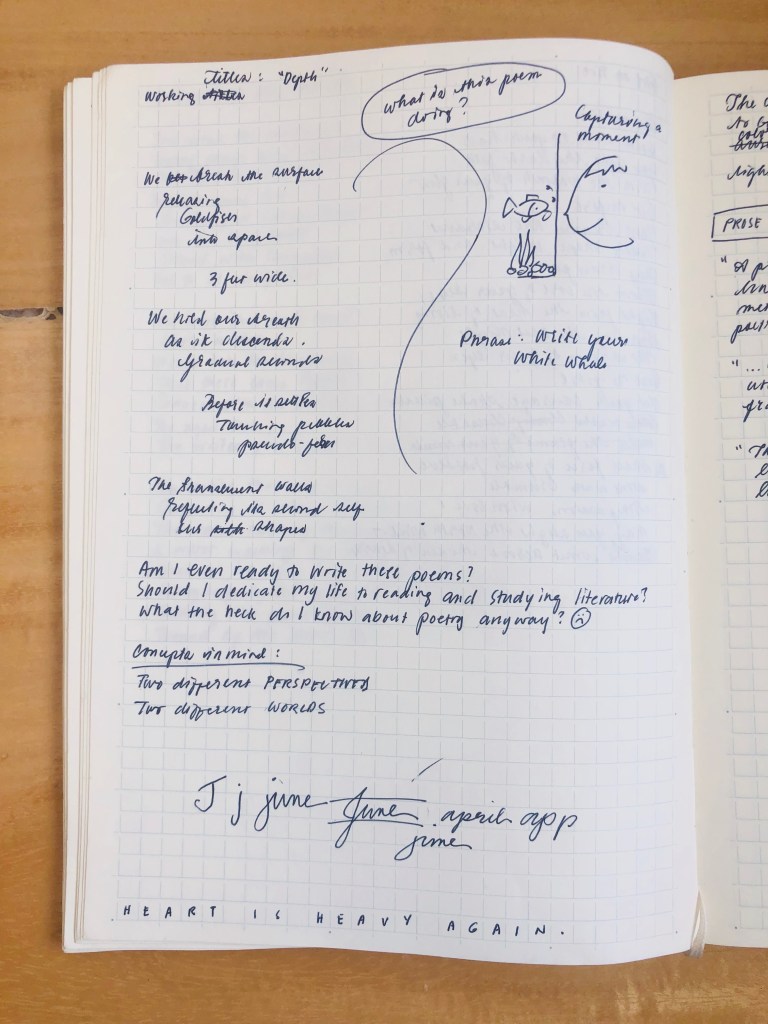 Title: "Depth"
Working
what is this poem
doing?
Capturing a
moment
We break the surface
releasing
Goldfish
into space
3 feet wide.
We hold our breath
as it descends.
Gradual seconds
Before it settles
Touching pebbles
pseudo-
The translucent walls
Reflecting its second self
shapes
Phrase: Write your
White Whale
Am I even ready to write these poems?
Should I dedicate my life to reading and studying literature?
What the heck do I know about poetry anyway?
Concepts in mind:
Two different PERSPECTIVES
Two different WORLDS
J j june June april app
june
HEART IS HEAVY AGAIN.
The
to
PROSE
"A p
"...
"Th